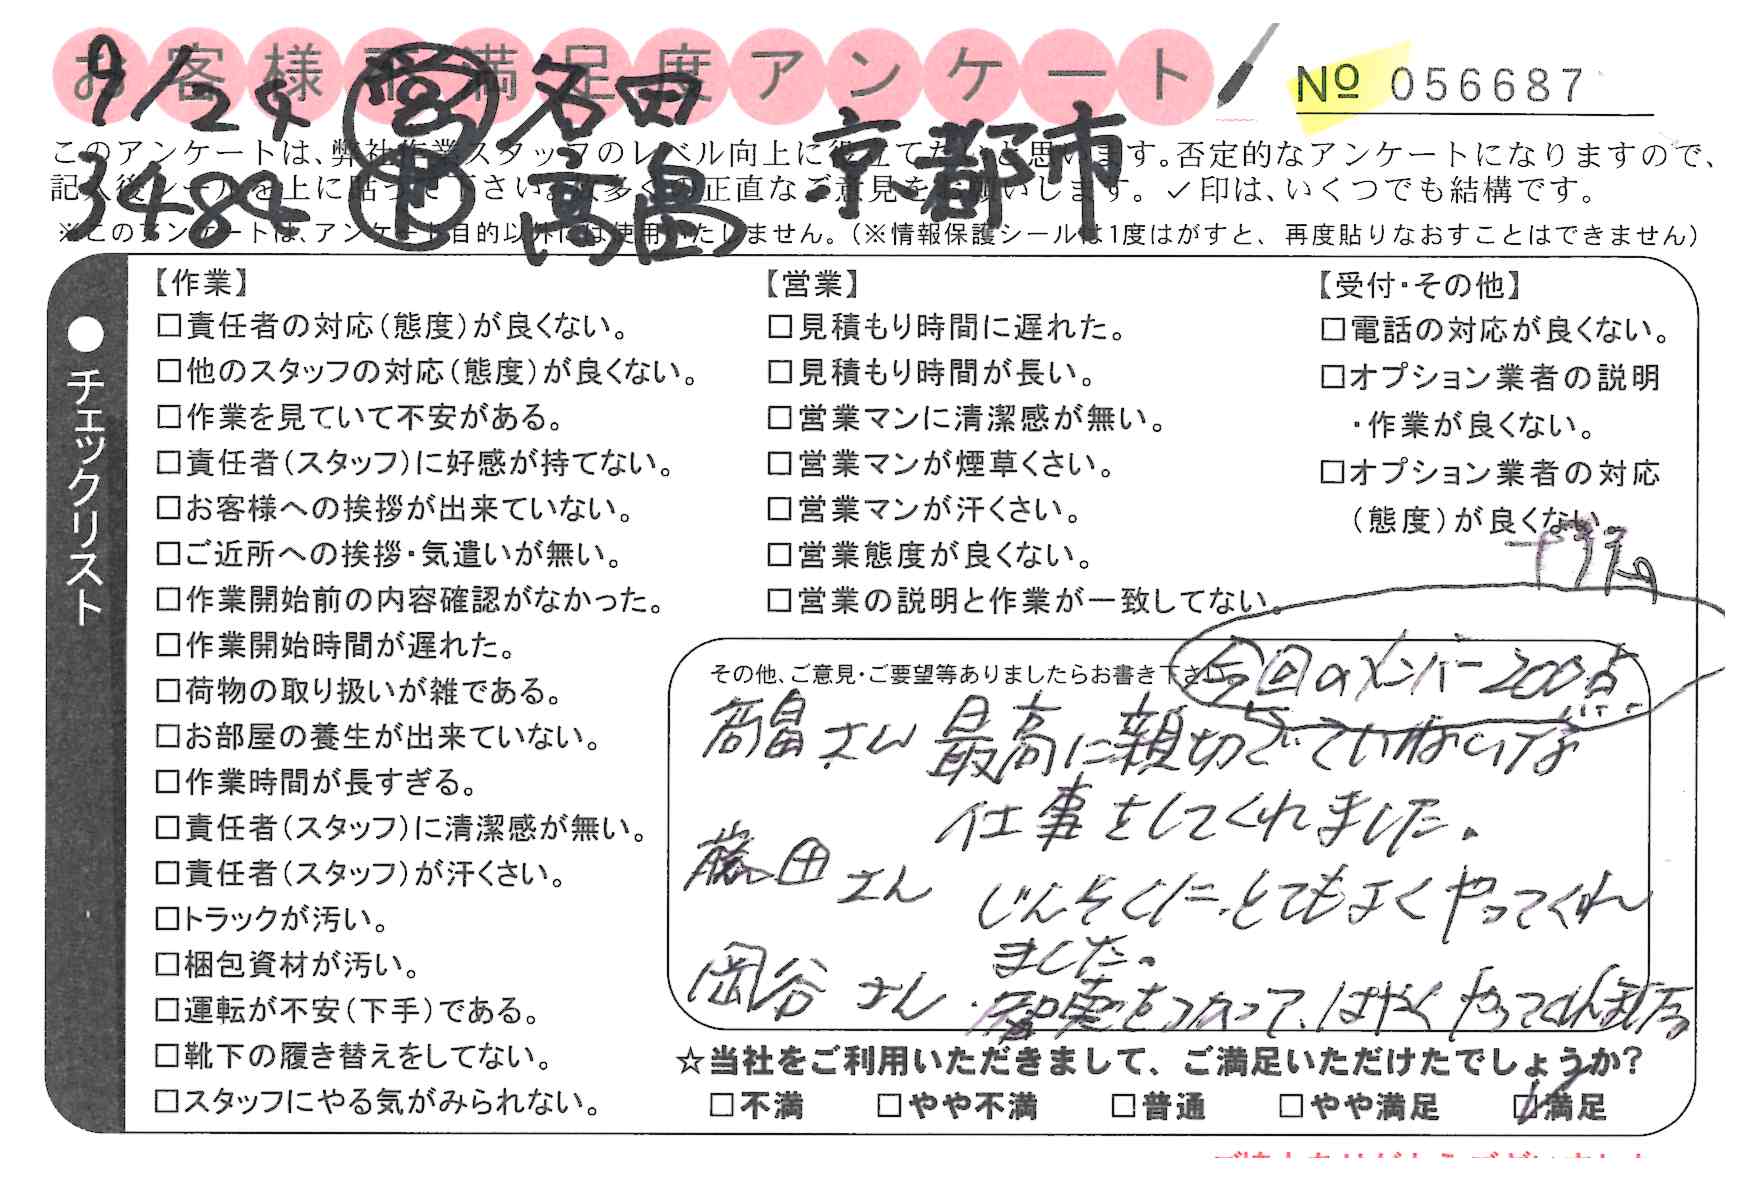 お客様不満足度アンケート
№ 056687
9/24 営 名田
3484 車 高畠 京都市
このアンケートは、弊社作業スタッフのレベル向上に役立てたいと思います。否定的なアンケートになりますので、
記入後シールを上に貼って下さい。数多くの正直なご意見をお願いします。✓印は、いくつでも結構です。
※このアンケートは、アンケート目的以外には使用いたしません。（※情報保護シールは1度はがすと、再度貼りなおすことはできません）
●チェックリスト
【作業】
□責任者の対応（態度）が良くない。
□他のスタッフの対応（態度）が良くない。
□作業を見ていて不安がある。
□責任者（スタッフ）に好感が持てない。
□お客様への挨拶が出来ていない。
□ご近所への挨拶・気遣いが無い。
□作業開始前の内容確認がなかった。
□作業開始時間が遅れた。
□荷物の取り扱いが雑である。
□お部屋の養生が出来ていない。
□作業時間が長すぎる。
□責任者（スタッフ）に清潔感が無い。
□責任者（スタッフ）が汗くさい。
□トラックが汚い。
□梱包資材が汚い。
□運転が不安（下手）である。
□靴下の履き替えをしてない。
□スタッフにやる気がみられない。
【営業】
□見積もり時間に遅れた。
□見積もり時間が長い。
□営業マンに清潔感が無い。
□営業マンが煙草くさい。
□営業マンが汗くさい。
□営業態度が良くない。
□営業の説明と作業が一致してない。
【受付・その他】
□電話の対応が良くない。
□オプション業者の説明
・作業が良くない。
□オプション業者の対応
（態度）が良くない。
その他、ご意見・ご要望等ありましたらお書き下さい
今回のメンバー200点
高畠さん 最高に親切でていねいな
仕事をしてくれました。
藤田さん じんそくに、とてもよくやってくれ
ました。
岡谷さん・をつかって、はやくやってくれました
☆当社をご利用いただきまして、ご満足いただけたでしょうか？
□不満 □やや不満 □普通 □やや満足 ☑満足